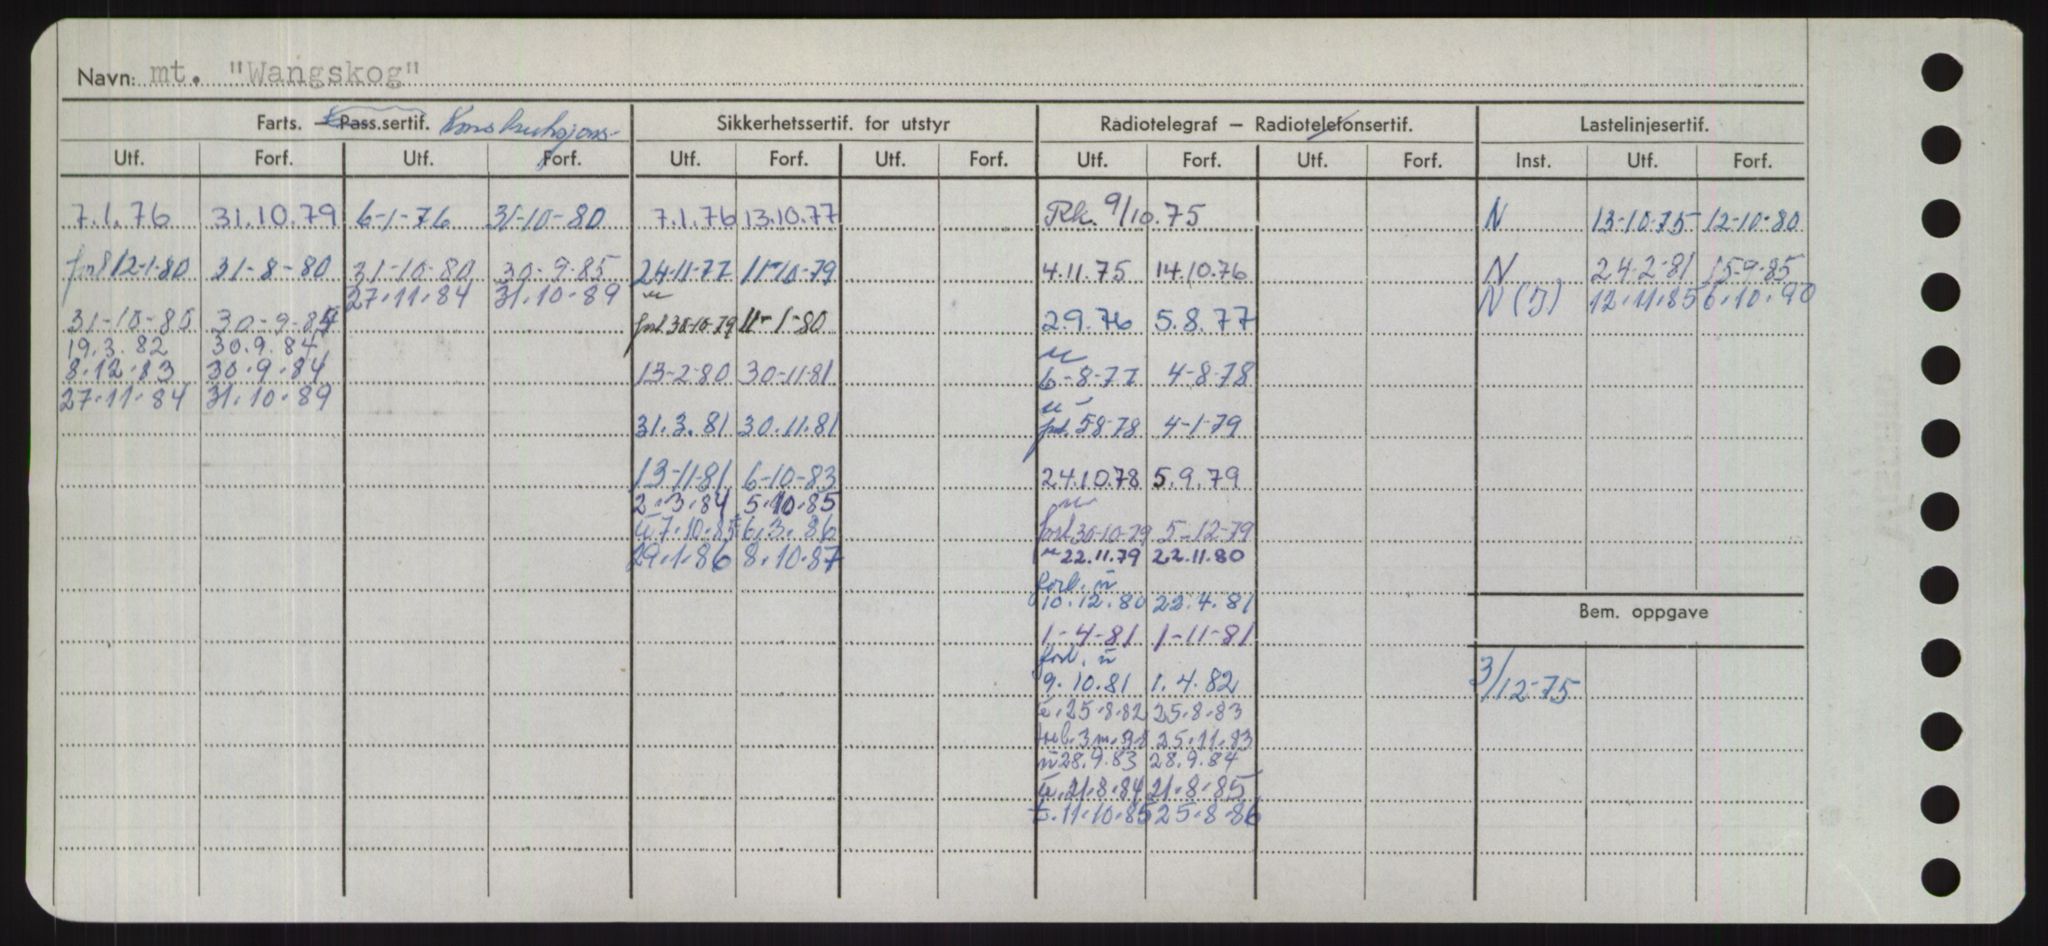 Navn: mt. "Wangskog"
Farts. — Pass.sertif. Konstruksjons- Sikkerhetssertif. for utstyr Radiotelegraf — Radiotelefonsertif. Lastelinjesertif.
Utf. Forf. Utf. Forf. Utf. Forf. Utf. Forf. Utf. Forf. Utf. Forf. Inst. Utf. Forf.
7.1.76 31.10.79 6-1-76 31-10-80 7.1.76 13.10.77 Rk. 9/10.75 N 13-10-75 12-10-80
forl 12-1-80 31-8-80 31-10-80 30-9-85 24-11-77 11-10-79 4.11.75 14.10.76 N 24-2-81 15-9-85
27.11.84 31.10.89 N (I) 12.11.85 6.10.90
31-10-80 30-9-84 forl 30-10-79 11-1-80 2.9.76 5.8.77
19.3.82 30.9.84
8.12.83 30.9.84 13-2-80 30-11-81 6-8-77 4-8-78
27.11.84 31.10.89
31.3.81 30.11.81 forl. 5-8-78 4-1-79
13-11-81 6-10-83 24.10.78 5.9.79
2.3.84 5.10.85
ü 7.10.85 6.3.86 forl 30-10-79 5-12-79
29.1.86 8.10.87 22.11.79 22.11.80
forl. ü
10.12.80 22.4.81
Bem. oppgave
1-4-81 1-11-81
forl. ü
9.10.81 1.4.82 3/12-75
ü.25.8.82 25.8.83
25.11.83
ü 28.9.83 28.9.84
ü.21.8.84 21.8.85
t.11.10.85 25.8.86